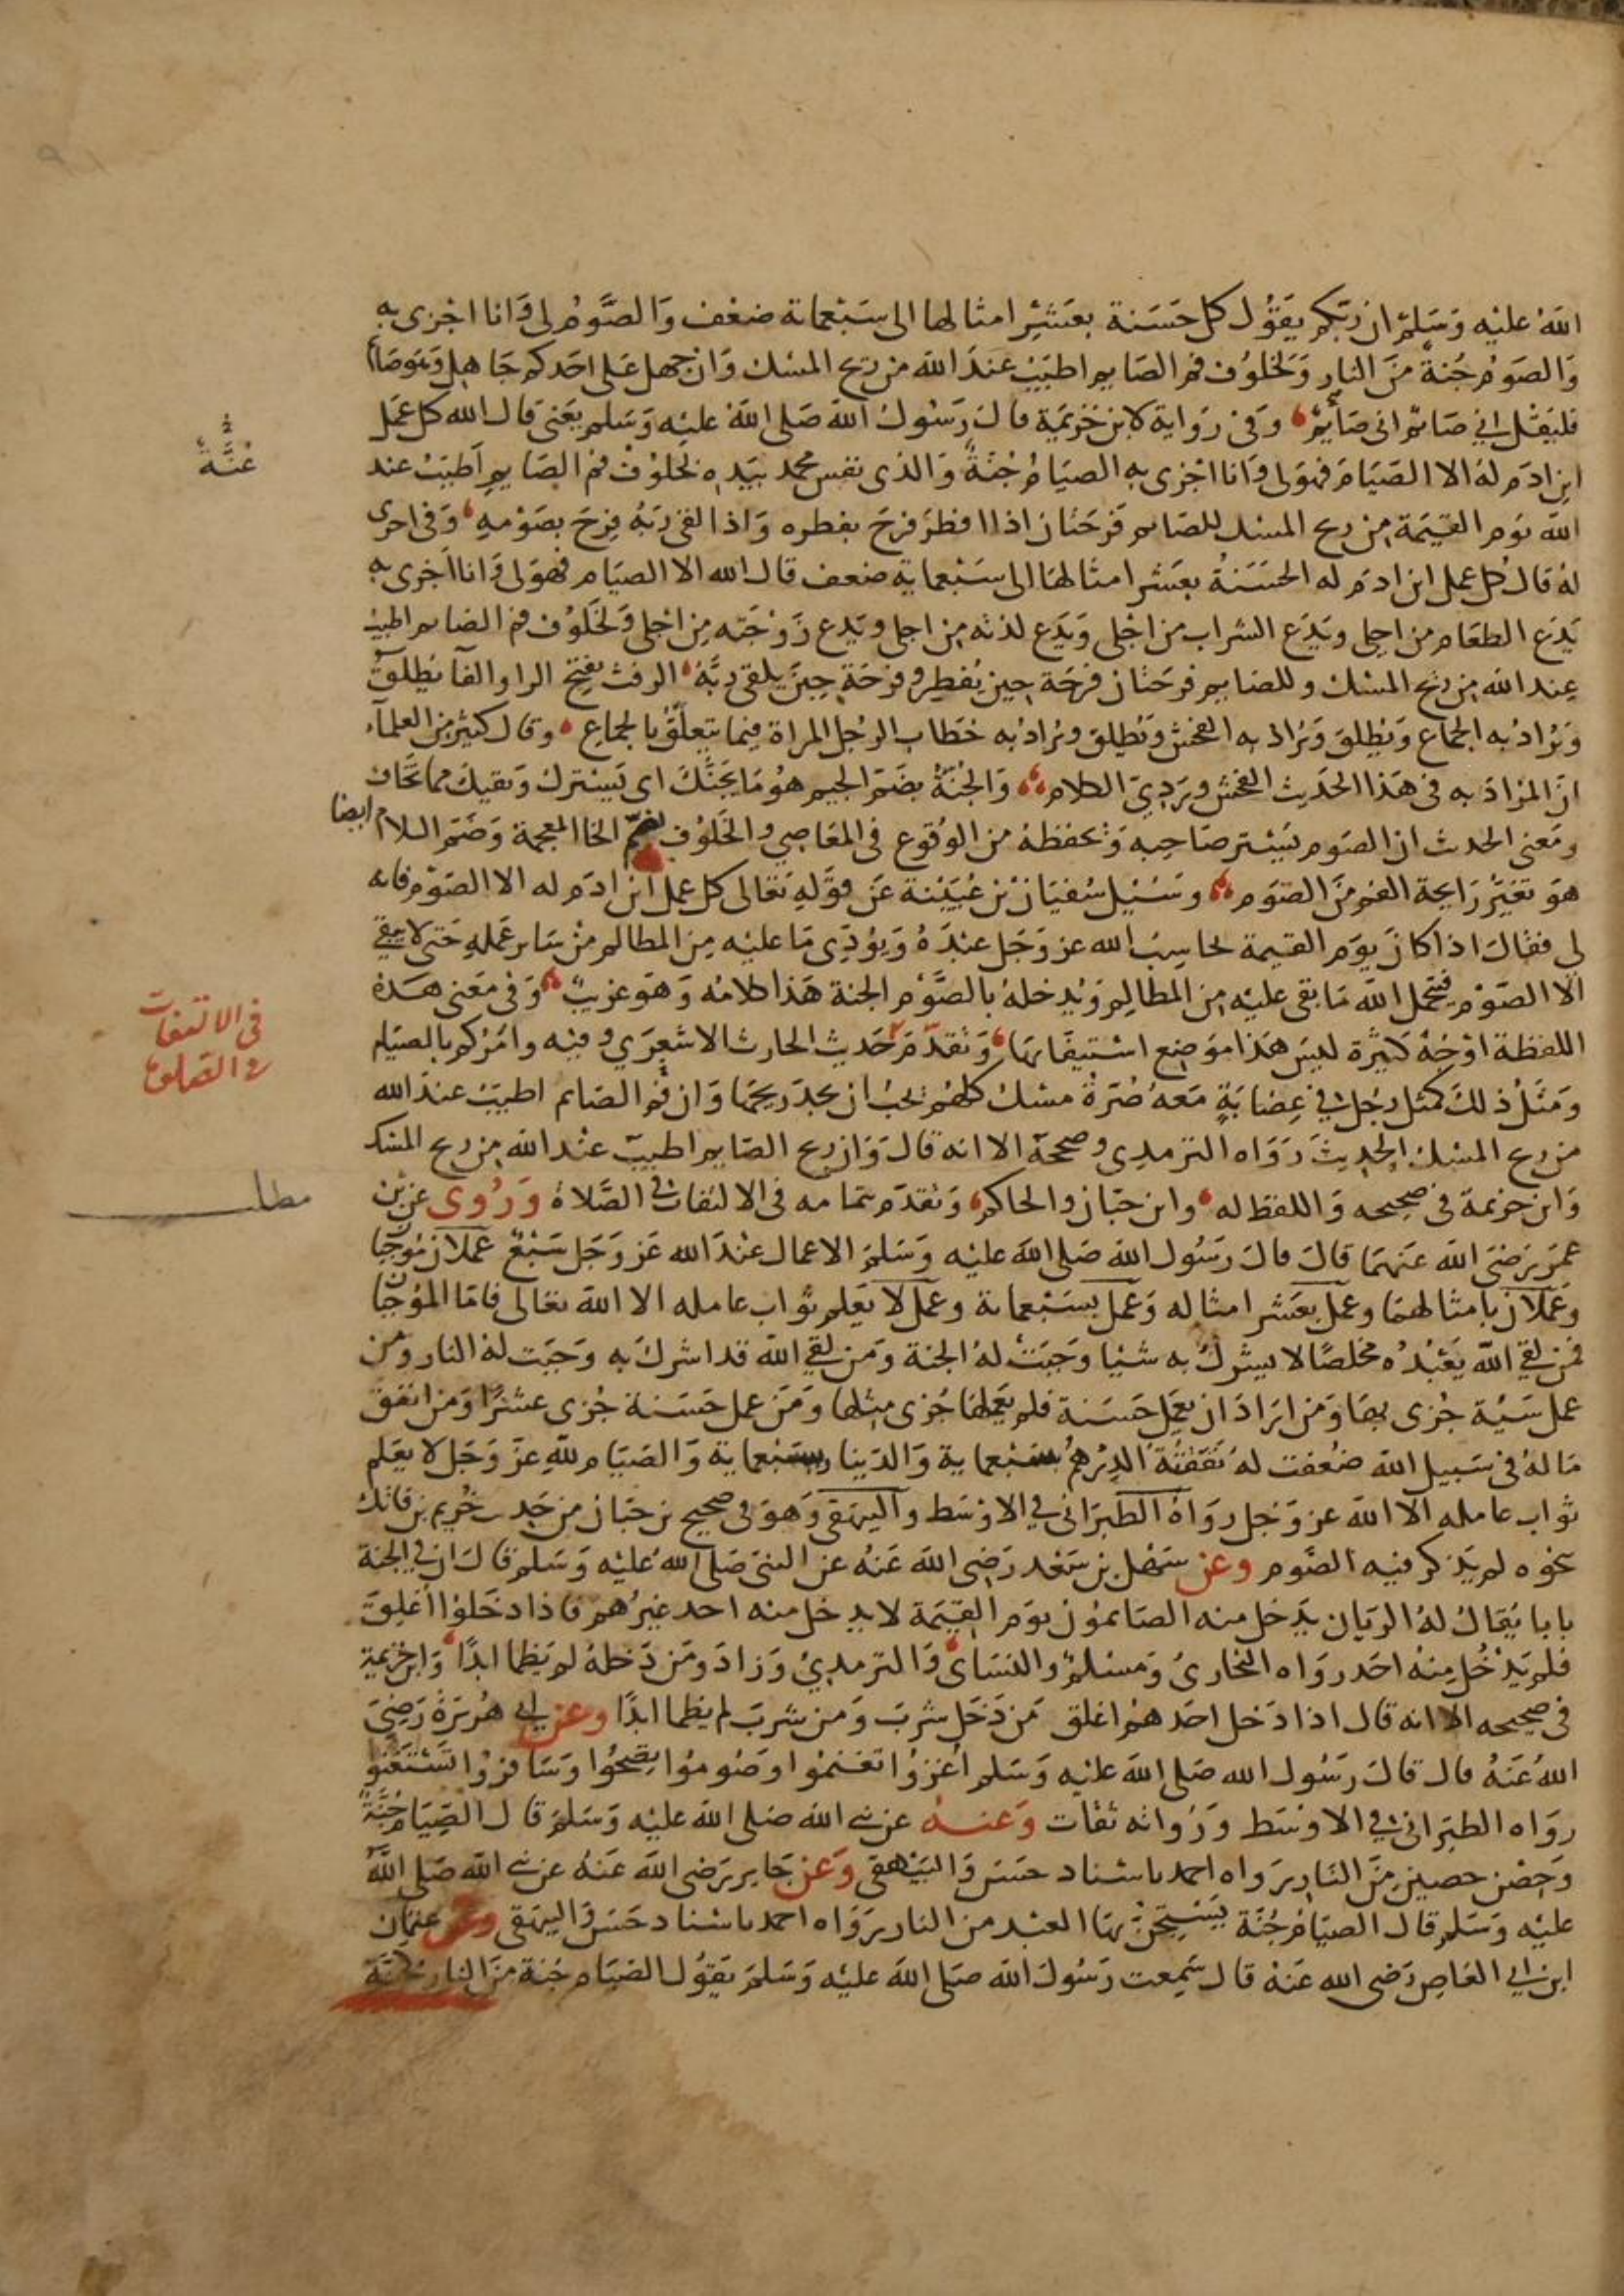 الله عليه وسلم ان ربكم يقول كل حسنة بعشر امثالها الى سبعماية ضعف والصوم لى وانا اجزى به
والصوم جنة من النار ولخلوف فم الصايم اطيب عند الله من ريح المسك وان جهل على احدكم جاهل وهو صايم
فليقل اني صائم انى صائم وفى رواية لابن خزيمة قال رسول الله صلى الله عليه وسلم يعنى قال الله كل عمل
ابن ادم له الا الصيام فهو لى وانا اجزى به الصيام جنة والذى نفس محمد بيده لخلوف فم الصايم اطيب عند
الله يوم القيمة من ريح المسك للصايم فرحتان اذا افطر فرح بفطره واذا لقى ربه فرح بصومه وفى اخرى
له قال كل عمل ابن ادم له الحسنة بعشر امثالها الى سبعماية ضعف قال الله الا الصيام فهو لى وانا اجزى به
يدع الطعام من اجلى ويدع الشراب من اجلى ويدع لذته من اجلى ويدع زوجته من اجلى ولخلوف فم الصايم اطيب
عند الله من ريح المسك وللصايم فرحتان فرحة حين يفطر وفرحة حين يلقى ربه الرفث بفتح الرا والفا يطلق
ويراد به الجماع ويطلق ويراد به الفحش ويطلق ويراد به خطاب الرجل المراة فيما يتعلق بالجماع وقال كثير من العلماء
ان المراد به فى هذا الحديث الفحش وردي الكلام والجنة بضم الجيم هو ما يجنك اى يسترك ويقيك مما تخاف
ومعنى الحديث ان الصوم يستر صاحبه ويحفظه من الوقوع فى المعاصي والخلوف بضم الخا المعجمة وضم اللام ايضا
هو تغير رايحة الفم من الصوم وسئيل سفيان بن عيينة عن قوله تعالى كل عمل ابن ادم له الا الصوم فانه
لى فقال اذا كان يوم القيمة يحاسب الله عز وجل عبده ويؤدى ما عليه من المظالم من ساير عمله حتى لا يبقى
الا الصوم فيتحمل الله ما بقى عليه من المظالم ويدخله بالصوم الجنة هذا كلامه وهو غريب وفى معنى هذه
اللفظة اوجه كثيرة ليس هذا موضع استيفائها وتقدم حديث الحارث الاشعري وفيه وامركم بالصيام
ومثل ذلك كمثل رجل في عصابة معه صرة مسك كلهم يحب ان يجد ريحها وان فم الصائم اطيب عند الله
من ريح المسك الحديث رواه الترمدى وصححه الا انه قال وان ريح الصايم اطيب عند الله من ريح المسك
وابن خزيمة فى صحيحه واللفظ له وابن حبان والحاكم وتقدم بتمامه فى الالتفات فى الصلاة وروى عن بن
عمر رضى الله عنهما قال قال رسول الله صلى الله عليه وسلم الاعمال عند الله عز وجل سبع عملان موجبان
وعملان بامثالهما وعمل بعشر امثاله وعمل بسبعماية وعمل لا يعلم ثواب عامله الا الله تعالى فاما الموجبان
فمن لقى الله يعبده مخلصا لا يشرك به شيا وجبت له الجنة ومن لقى الله قد اشرك به وجبت له النار ومن
عمل سيئة جزى بها ومن اراد ان يعمل حسنة فلم يعملها جزى مثلها ومن عمل حسنة جزى عشرا ومن انفق
ماله فى سبيل الله ضعفت له نفقته الدرهم بسبعماية والدينار بسبعماية والصيام لله عز وجل لا يعلم
ثواب عامله الا الله عز وجل رواه الطبرانى في الاوسط والبيهقى وهو فى صحيح بن حبان من حديث خريم بن فاتك
بنحوه لم يذكر فيه الصوم وعن سهل بن سعد رضى الله عنه عن النبى صلى الله عليه وسلم قال ان في الجنة
بابا يقال له الريان يدخل منه الصائمون يوم القيمة لا يدخل منه احد غيرهم فاذا دخلوا اغلق
فلم يدخل منه احد رواه البخارى ومسلم والنساى والترمدي وزاد ومن دخله لم يظما ابدا وابن خزيمة
فى صحيحه الا انه قال اذا دخل احدهم اغلق من دخل شرب ومن شرب لم يظما ابدا وعن ابي هريرة رضى
الله عنه قال قال رسول الله صلى الله عليه وسلم اغزوا تغنموا وصوموا تصحوا وسافروا تستغنوا
رواه الطبرانى في الاوسط ورواته ثقات وعنه عن نبى الله صلى الله عليه وسلم قال الصيام جنة
وحصن حصين من النار رواه احمد باسناد حسن والبيهقى وعن جابر رضى الله عنه عن نبى الله صلى الله
عليه وسلم قال الصيام جنة يستجن بها العبد من النار رواه احمد باسناد حسن والبيهقى وعن عثمان
ابن ابي العاص رضى الله عنه قال سمعت رسول الله صلى الله عليه وسلم يقول الصيام جنة من النار كجنة
فى الالتفات
فى الصلوة
مطلب